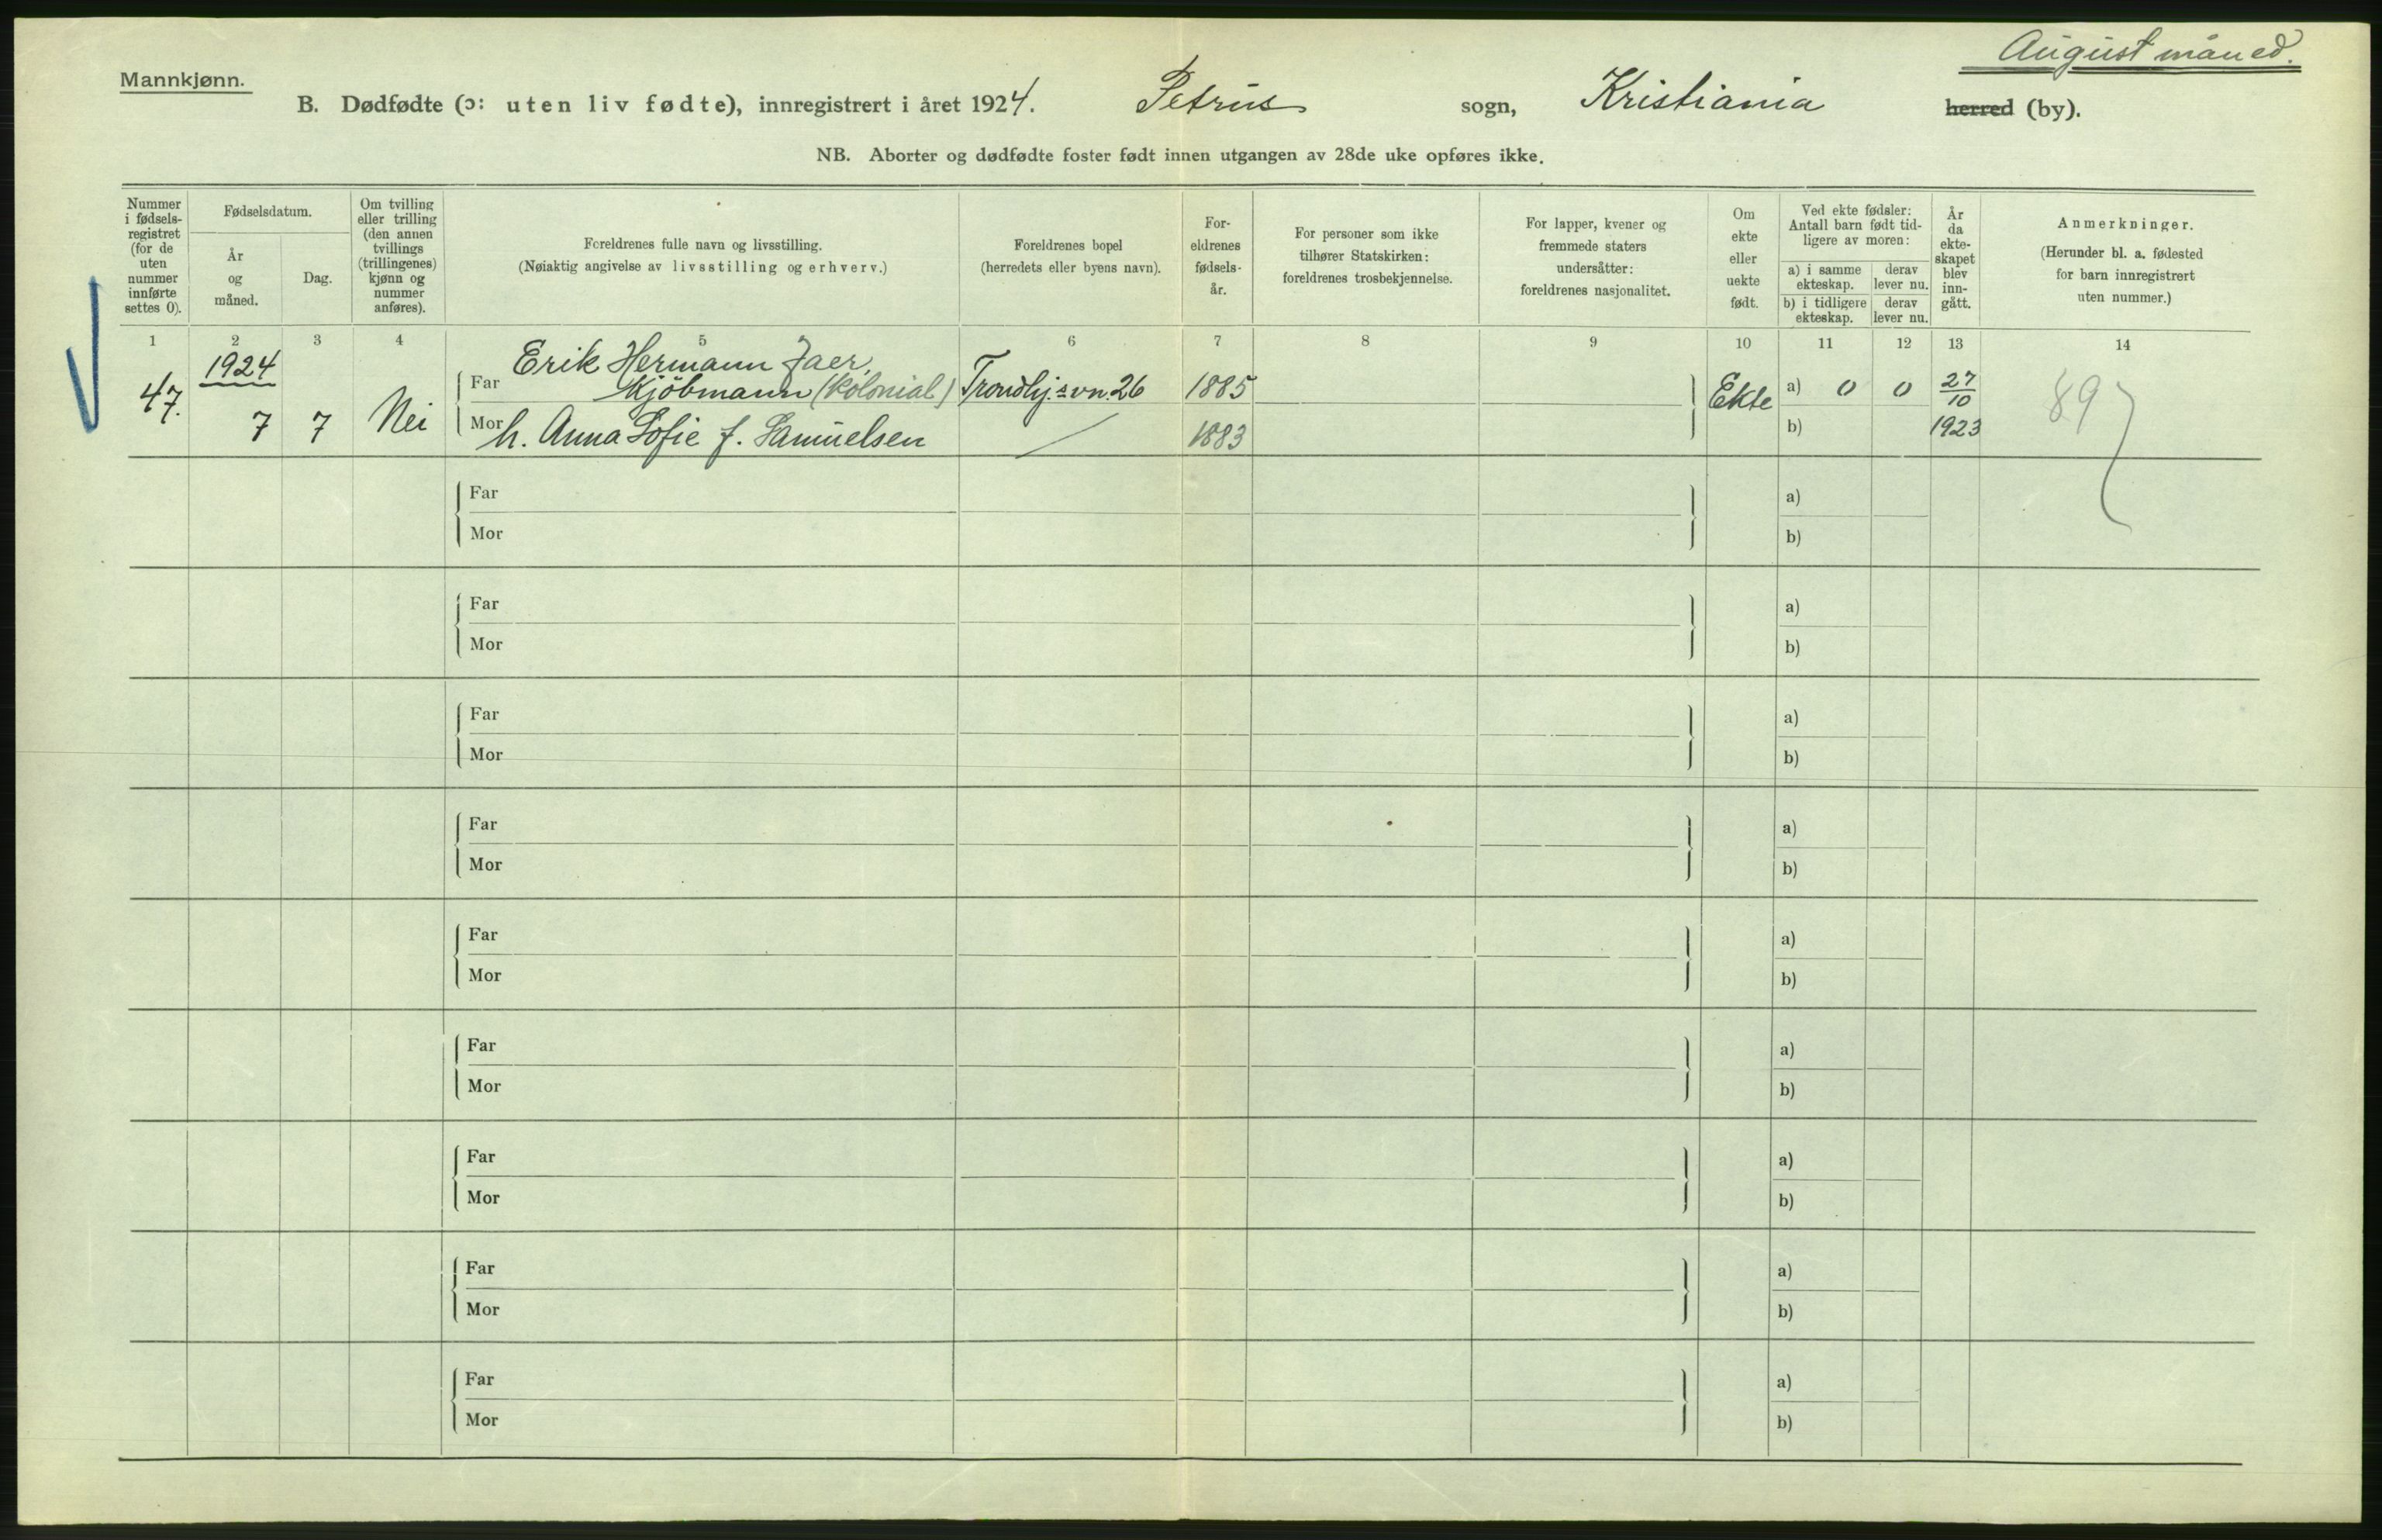 August måned.
Mannkjønn.
B. Dødfødte (ɔ: uten liv fødte), innregistrert i året 1924. Petrus sogn, Kristiania herred (by).
NB. Aborter og dødfødte foster født innen utgangen av 28de uke opføres ikke.
Nummer
i fødsels-
registret
(for de
uten
nummer
innførte
settes 0).
Fødselsdatum.
År
og
måned.
Dag.
Om tvilling
eller trilling
(den annen
tvillings
(trillingenes)
kjønn og
nummer
anføres).
Foreldrenes fulle navn og livsstilling.
(Nøiaktig angivelse av livsstilling og erhverv.)
Foreldrenes bopel
(herredets eller byens navn).
For-
eldrenes
fødsels-
år.
For personer som ikke
tilhører Statskirken:
foreldrenes trosbekjennelse.
For lapper, kvener og
fremmede staters
undersåtter:
foreldrenes nasjonalitet.
Om
ekte
eller
uekte
født.
Ved ekte fødsler:
Antall barn født tid-
ligere av moren:
a) i samme
ekteskap.
derav
lever nu.
b) i tidligere
ekteskap.
derav
lever nu.
År
da
ekte-
skapet
blev
inn-
gått.
Anmerkninger.
(Herunder bl. a. fødested
for barn innregistrert
uten nummer.)
1 2 3 4 5 6 7 8 9 10 11 12 13 14
1924 Erik Hermann Jaer,
47. Far Kjöbmann (kolonial) Trondhj.svn. 26 1885 Ekte a) 0 0 27/10 89
7 7 Nei Mor h. Anna Sofie f. Samuelsen 1883 b) 1923
Far a)
Mor b)
Far a)
Mor b)
Far a)
Mor b)
Far a)
Mor b)
Far a)
Mor b)
Far a)
Mor b)
Far a)
Mor b)
Far a)
Mor b)
Far a)
Mor b)